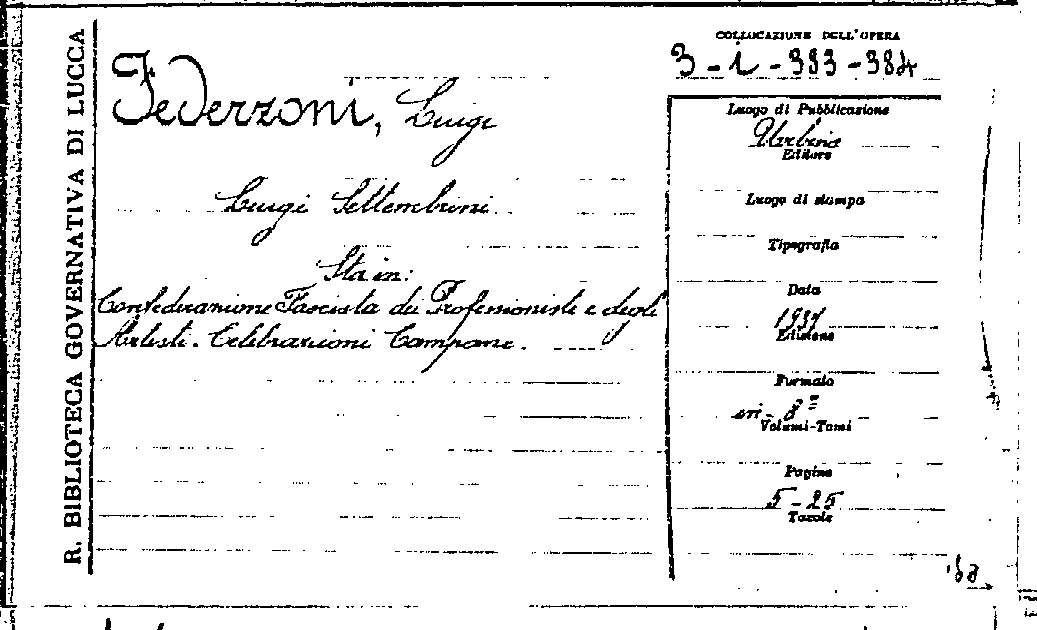 R. BIBLIOTECA GOVERNATIVA DI LUCCA
Federzoni, Luigi
Luigi Settembrini
Sta in:
Confederazione Fascista dei Professionisti e degli
Artisti. Celebrazioni Campane.
COLLOCAZIONE DELL'OPERA
3-i-383-384
Luogo di Pubblicazione
Urbino
Editore
Luogo di stampa
Tipografia
Data
1937
Edizione
Formato
in-8º
Volumi-Tomi
Pagine
5-25
Tavole